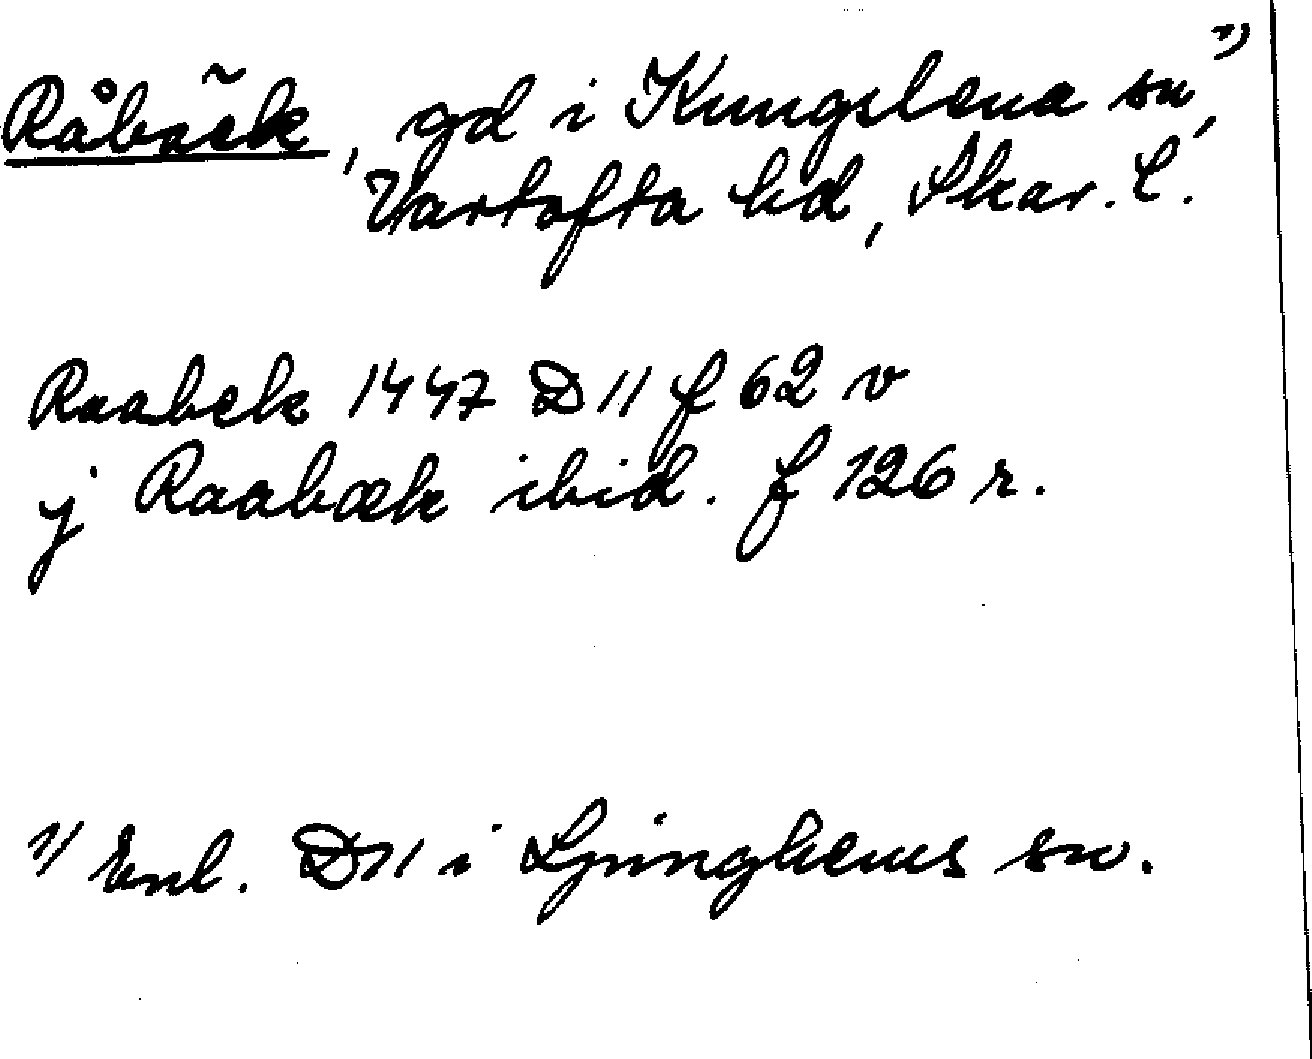 Råbäck, gd i Kungslena sn,¹⁾
Vartofta hd, Skar. l.
Raabek 1447 D 11 f 62 v
j Raabæk ibid. f 126 r.
¹⁾ Enl. D 11 i Ljunghems sn.